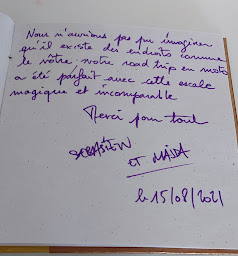 Nous n'aurions pas pu imaginer
qu'il existe des endroits comme
le vôtre. notre road trip en moto
a été parfait avec cette escale
magique et incomparable
Merci pour tout
SEBASTIEN
ET MAJDA
le 15/08/2021